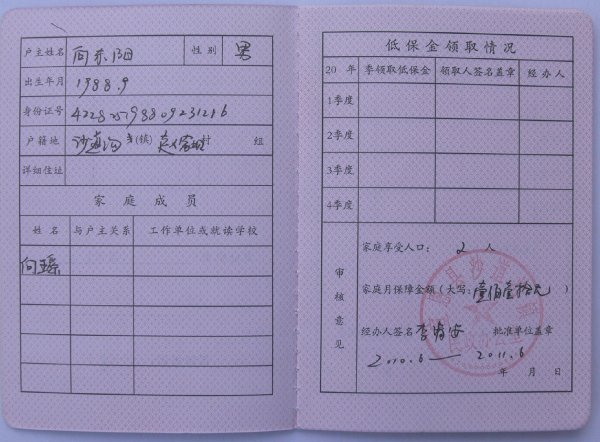 户主姓名 向东阳 性别 男
出生年月 1988.9
身份证号
户籍地 沙道沟 乡(镇) 村 组
详细住址
家庭成员
姓名 与户主关系 工作单位或就读学校
向瑶
低保金领取情况
20 年 季领取低保金 领取人签名盖章 经办人
1季度
2季度
3季度
4季度
审核意见
家庭享受人口: 2 人
家庭月保障金额(大写: 壹佰壹拾元 )
经办人签名 批准单位盖章
2010.6 — 2011.6
年 月 日